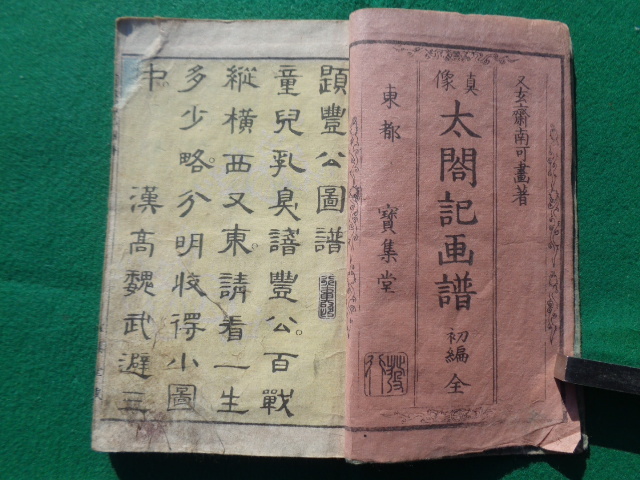 又玄齋南可畫著
真像
太閤記画譜 初編 全
東都 寶集堂
發行
題豐公圖譜
童兒乳臭諳豐公。百戰
縱橫西又東。請看一生
多少略。分明收得小圖
中 漢高魏武避三